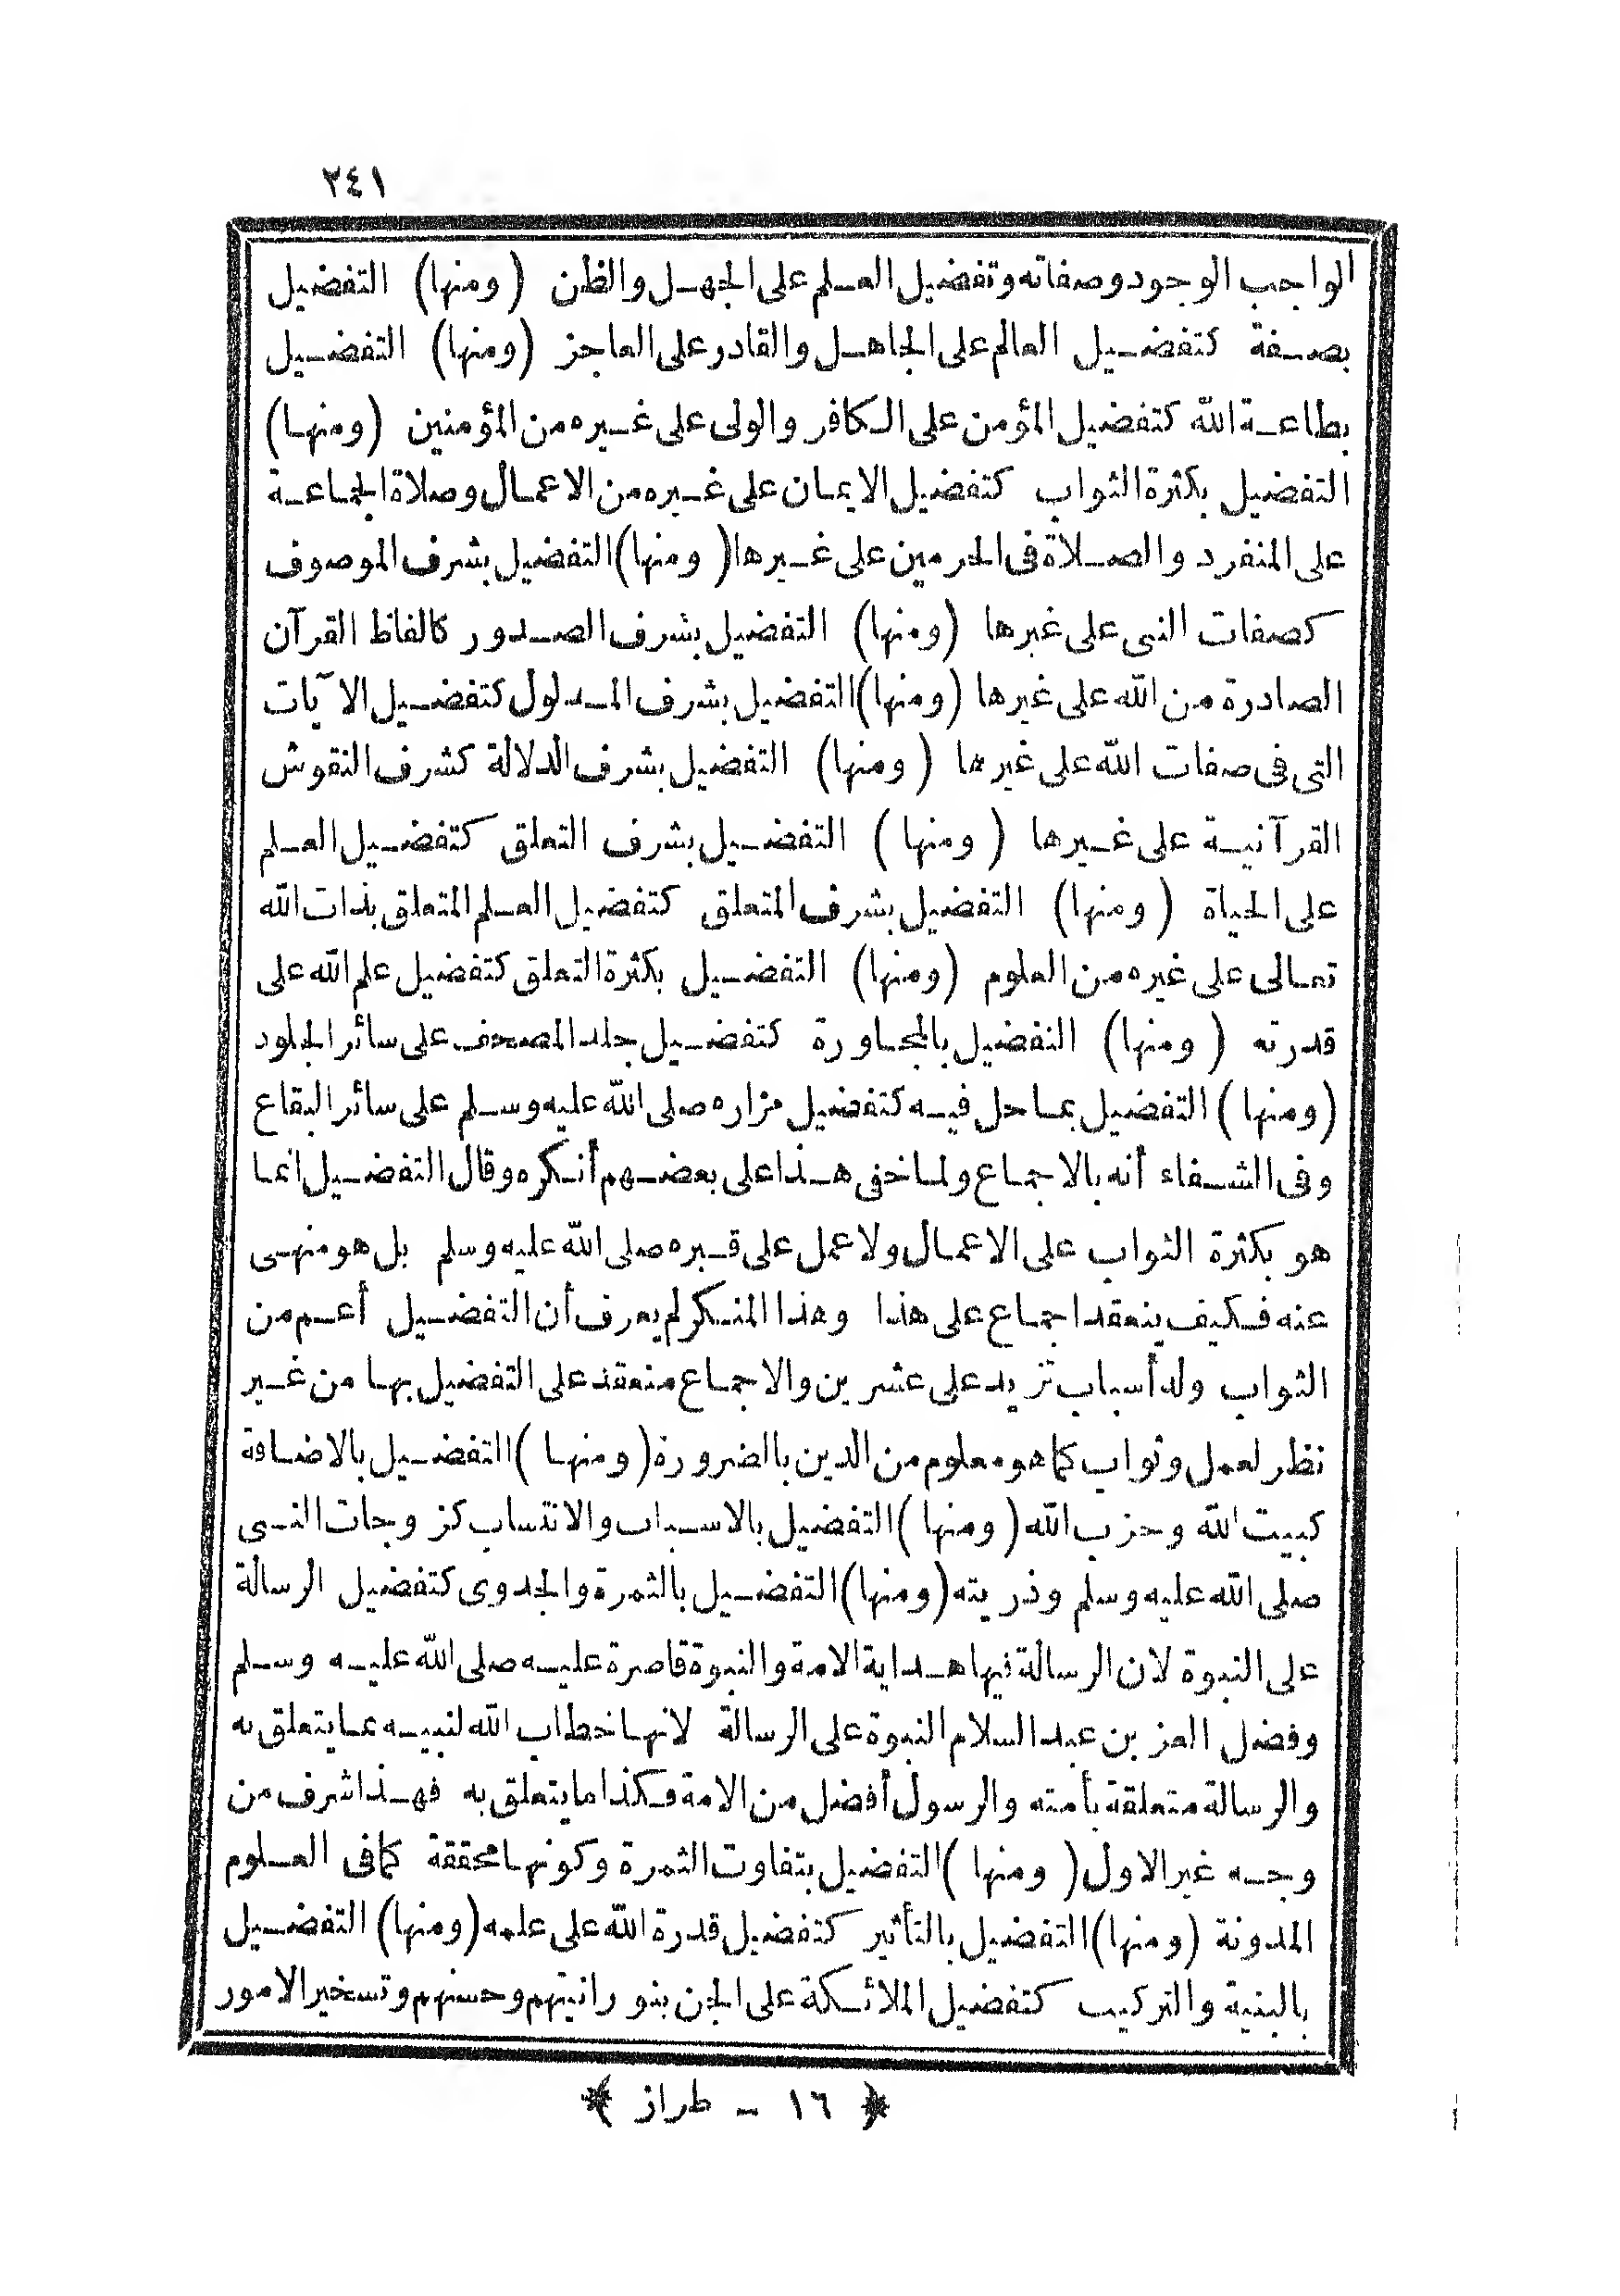 ٢٤١
الواجب الوجود وصفاته وتفضيل العلم على الجهل والظن (ومنها) التفضيل
بصفة كتفضيل العالم على الجاهل والقادر على العاجز (ومنها) التفضيل
بطاعة الله كتفضيل المؤمن على الكافر والولى على غيره من المؤمنين (ومنها)
التفضيل بكثرة الثواب كتفضيل الايمان على غيره من الاعمال وصلاة الجماعة
على المنفرد والصلاة فى الحرمين على غيرها (ومنها) التفضيل بشرف الموصوف
كصفات النبى على غيرها (ومنها) التفضيل بشرف الصدور كالفاظ القرآن
الصادرة من الله على غيرها (ومنها) التفضيل بشرف المدلول كتفضيل الآيات
التى فى صفات الله على غيرها (ومنها) التفضيل بشرف الدلالة كشرف النقوش
القرآنية على غيرها (ومنها) التفضيل بشرف التعلق كتفضيل العلم
على الحياة (ومنها) التفضيل بشرف المتعلق كتفضيل العلم المتعلق بذات الله
تعالى على غيره من العلوم (ومنها) التفضيل بكثرة التعلق كتفضيل علم الله على
قدرته (ومنها) التفضيل بالمجاورة كتفضيل جلد المصحف على سائر الجلود
(ومنها) التفضيل بما حل فيه كتفضيل مزاره صلى الله عليه وسلم على سائر البقاع
وفى الشفاء أنه بالاجماع ولما خفى هذا على بعضهم أنكره وقال التفضيل انما
هو بكثرة الثواب على الاعمال ولا عمل على قبره صلى الله عليه وسلم بل هو منهى
عنه فكيف ينعقد اجماع على هذا وهذا المنكر لم يعرف أن التفضيل أعم من
الثواب وله أسباب تزيد على عشرين والاجماع منعقد على التفضيل بها من غير
نظر لعمل وثواب كما هو معلوم من الدين بالضرورة (ومنها) التفضيل بالاضافة
كبيت الله وحزب الله (ومنها) التفضيل بالاسباب والانتساب كزوجات النبى
صلى الله عليه وسلم وذريته (ومنها) التفضيل بالثمرة والجدوى كتفضيل الرسالة
على النبوة لان الرسالة فيها هداية الامة والنبوة قاصرة عليه صلى الله عليه وسلم
وفضل العز بن عبد السلام النبوة على الرسالة لانها خطاب الله لنبيه عما يتعلق به
والرسالة متعلقة بأمته والرسول أفضل من الامة فكذا ما يتعلق به فهذا شرف من
وجه غير الاول (ومنها) التفضيل بتفاوت الثمرة وكونها محققة كما فى العلوم
المدونة (ومنها) التفضيل بالتأثير كتفضيل قدرة الله على علمه (ومنها) التفضيل
بالبنية والتركيب كتفضيل الملائكة على الجن بنورانيتهم وحسنهم وتسخير الامور
﴿ ١٦ – طراز ﴾